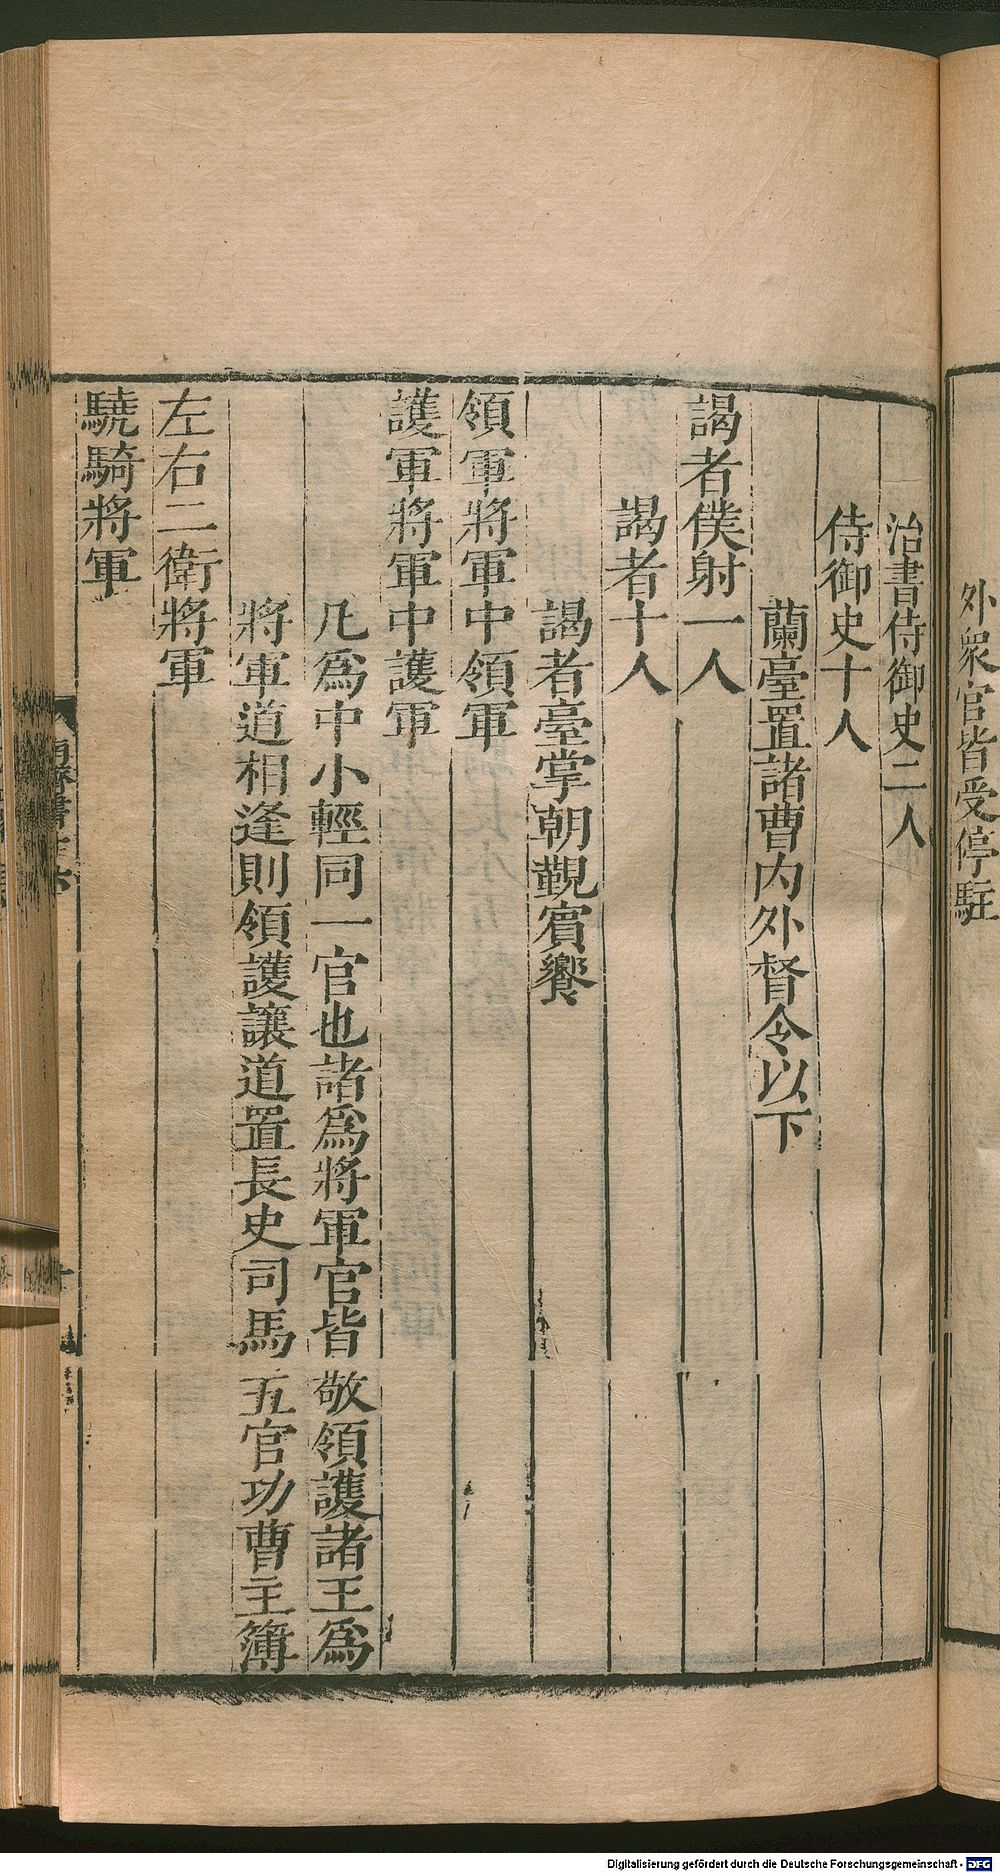 外衆官皆受停駐
治書侍御史二人
侍御史十人
蘭臺置諸曹内外督令以下
謁者僕射一人
謁者十人
謁者臺掌朝覲賓饗
領軍將軍中領軍
護軍將軍中護軍
凡爲中小輕同一官也諸爲將軍官皆敬領護諸王爲
將軍道相逢則領護讓道置長史司馬五官功曹主簿
左右二衛將軍
驍騎將軍
Digitalisierung gefördert durch die Deutsche Forschungsgemeinschaft - DFG